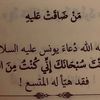 مَنْ ضَاقَتْ عَلَيْهِ
الله دُعاءَ يونس عليه السلا
أَنْتَ سُبْحَانَكَ إِنِّي كُنْتُ مِنَ ال
فقد هيّأ له المتّسع !